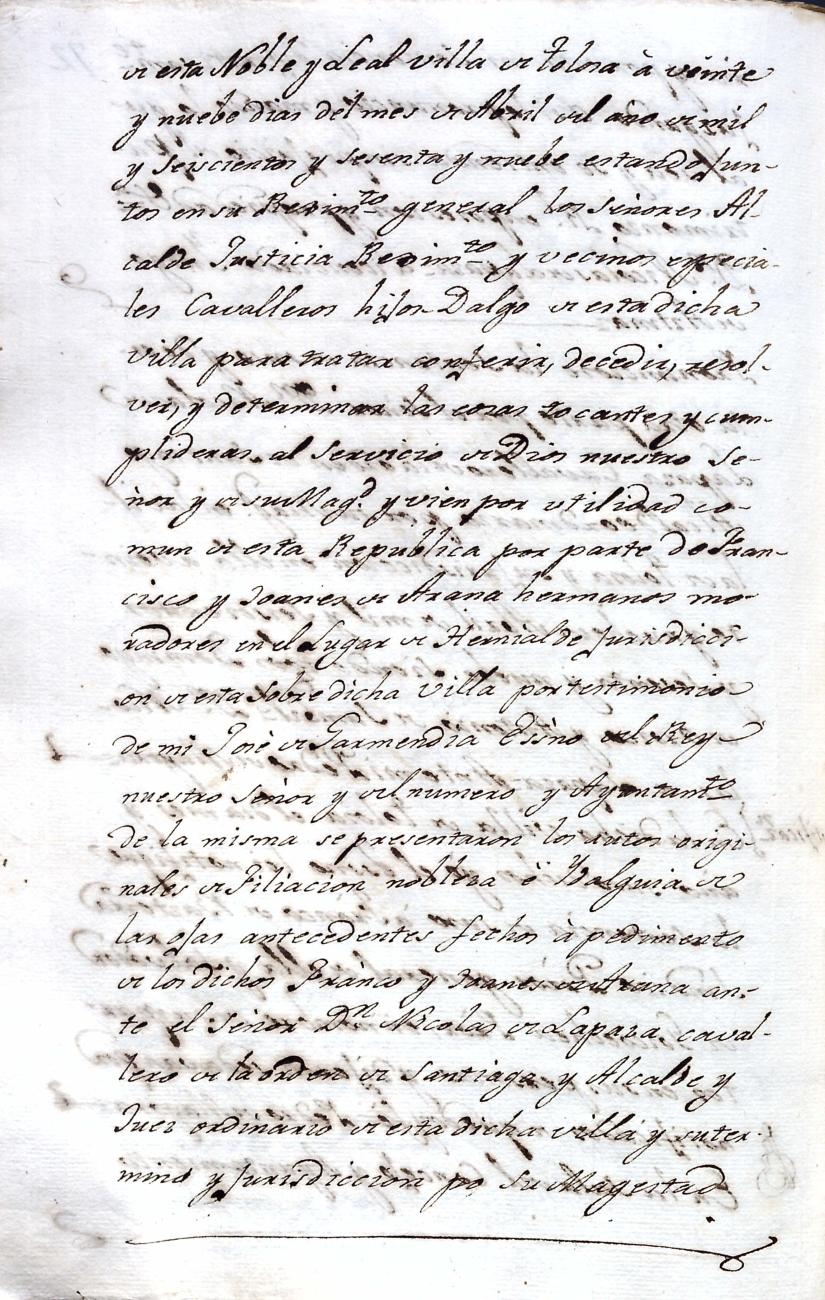 de esta Noble y Leal villa de Tolosa à veinte
y nuebe dias del mes de Abril del año de mil
y seiscientos y sesenta y nuebe estando Jun-
tos en su Rexim.to general los señores Al-
calde Justicia Rexim.to y vecinos especia-
les Cavalleros hijos Dalgo de esta dicha
villa para tratar conferir, decedir, resol-
ver, y determinar las cosas tocantes y cum-
plideras al servicio de Dios nuestro Se-
ñor y de su Mag.d y vien por utilidad co-
mun de esta Republica por parte de Fran-
cisco y Joanes de Arana hermanos mo-
radores en el Lugar de Hernialde Jurisdicci-
on de esta sobre dicha villa por testimonio
de mi José de Garmendia Essno del Rey
nuestro señor y del numero y Ayuntam.to
de la misma se presentaron los autos origi-
nales de Filiacion nobleza è Ydalguia de
las ojas antecedentes fechos à pedimento
de los dichos Franco y Joanes de Arana an-
te el señor D.n Nicolas de Lapaza caval-
lero de la orden de Santiago y Alcalde y
Juez ordinario de esta dicha villa y su ter-
mino y Jurisdiccion po su Magestad